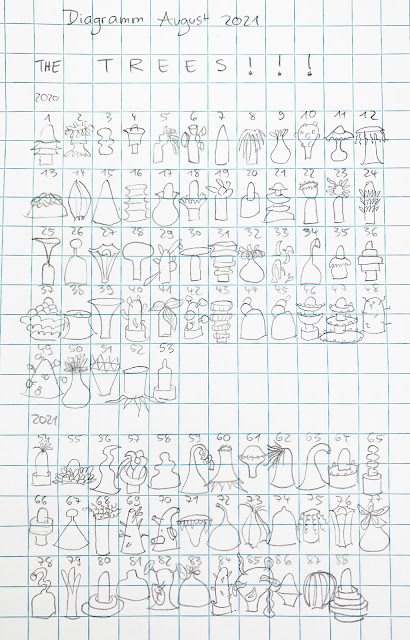 Diagramm August 2021
THE TREES!!!
2020
1 2 3 4 5 6 7 8 9 10 11 12
13 14 15 16 17 18 19 20 21 22 23 24
25 26 27 28 29 30 31 32 33 34 35 36
37 38 39 40 41 42 43 44 45 46 47 48
49 50 51 52 53
2021
54 55 56 57 58 59 60 61 62 63 64 65
66 67 68 69 70 71 72 73 74 75 76 77
78 79 80 81 82 83 84 85 86 87 88